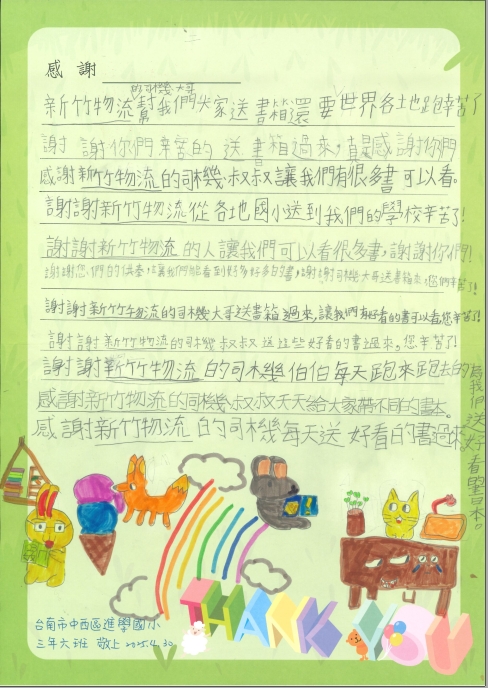 感謝
司機大哥
新竹物流幫我們大家送書箱還要世界各地跑辛苦了
謝謝你們辛苦的送書箱過來,真是感謝你們
感謝新竹物流的司機叔叔讓我們有很多書可以看。
謝謝新竹物流從各地國小送到我們的學校辛苦了!
謝謝新竹物流的人讓我們可以看很多書,謝謝你們!
謝謝您們的供奉,讓我們能看到好多好多的書,謝謝司機大哥送書箱來,您們辛苦了!
謝謝新竹物流的司機大哥送書箱過來,讓我們有好看的書可以看您辛苦了!
謝謝新竹物流的司機叔叔送這些好看的書過來,您辛苦了!
謝謝新竹物流的司機伯伯每天跑來跑去的
為我們送好看書本。
感謝新竹物流的司機叔叔天天給大家帶不同的書本。
感謝新竹物流的司機每天送好看的書過來。
THANK YOU
台南市中西區進學國小
三年大班 敬上 2025.4.30